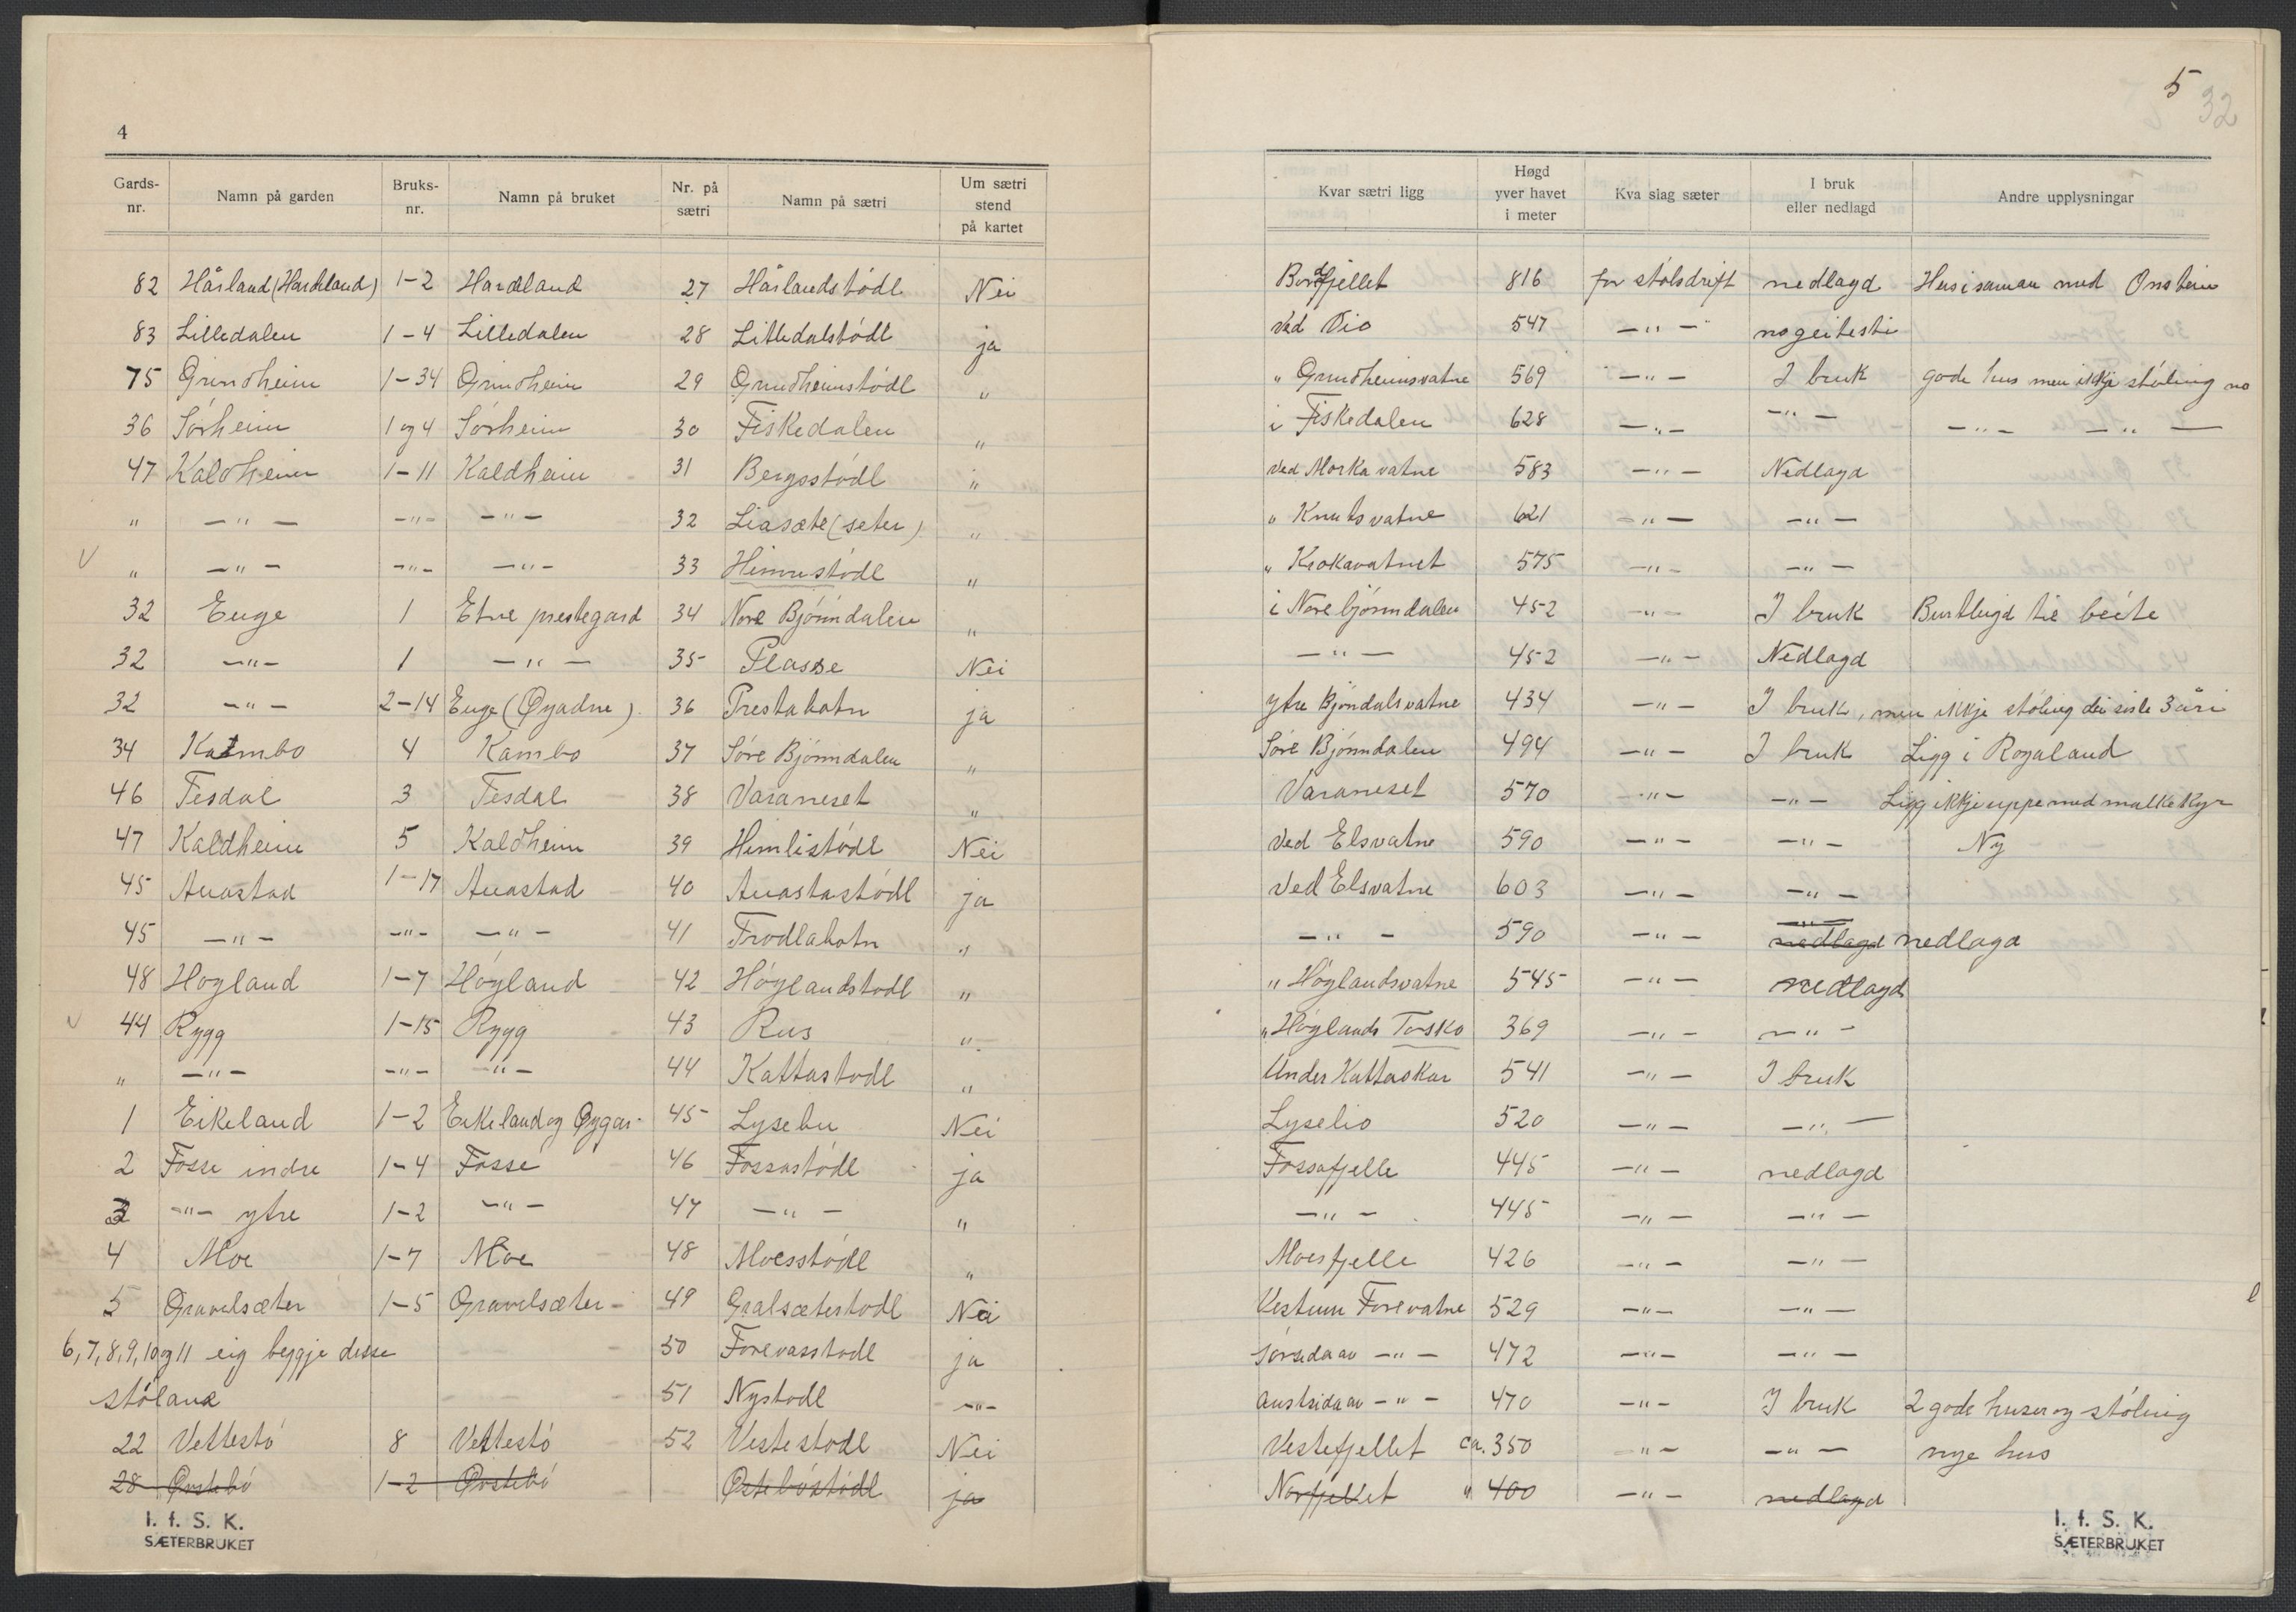 4
Gards-nr. Namn på garden Bruks-nr. Namn på bruket Nr. på sætri Namn på sætri Um sætri stend på kartet
82 Hårland (Hardeland) 1-2 Hardeland 27 Hårlandstödl Nei
83 Litledalen 1-4 Litledalen 28 Litledalstödl ja
75 Grindheim 1-34 Grindheim 29 Grindheimstödl "
36 Sörheim 1 og 4 Sörheim 30 Fiskedalen "
47 Kaldheim 1-11 Kaldheim 31 Bergsstödl "
" -"- -"- -"- 32 Liasæte (seter) "
V " -"- -"- -"- 33 Himnestödl "
32 Enge 1 Etne prestegard 34 Nore Björndalen "
32 -"- 1 -"- 35 Plasse Nei
32 -"- 2-14 Enge (Øyadne) 36 Prestabotn ja
34 Kambo 4 Kambo 37 Söre Björndalen "
46 Tesdal 3 Tesdal 38 Varaneset "
47 Kaldheim 5 Kaldheim 39 Himlistödl Nei
45 Austad 1-17 Austad 40 Austastödl ja
45 -"- -"- -"- 41 Trodlabotn "
48 Högland 1-7 Högland 42 Höglandstödl "
V 44 Rygg 1-15 Rygg 43 Rus "
" -"- -"- -"- 44 Kattastödl "
1 Eikeland 1-2 Eikeland og Øygar- 45 Lysebu Nei
2 Fosse indre 1-4 Fosse 46 Fossastödl ja
3 -"- ytre 1-2 -"- 47 -"- "
4 Moe 1-7 Moe 48 Moesstödl "
5 Gravelsæter 1-5 Gravelsæter 49 Gralsæterstodl Nei
6, 7, 8, 9, 10 og 11 eig beggje desse 50 Forevasstodl ja
stölane 51 Nystodl -"-
22 Vettestö 8 Vettestö 52 Vestestodl Nei
28 Østebö 1-2 Østebö Östeböstödl ja
I. f. S. K.
SÆTERBRUKET
5
32
Kvar sætri ligg Høgd yver havet i meter Kva slag sæter I bruk eller nedlagd Andre upplysningar
Bordfjellet 816 for stölsdrift nedlagd Hus i saman med Onstein
Ved Vio 547 -"- no geitesti
" Grindheimsvatne 569 -"- I bruk gode hus men ikkje stöling no
i Fiskedalen 628 -"- -"- -"- -"-
Ved Morkavatne 583 -"- Nedlagd
" Knutsvatne 621 -"- -"-
" Krokavatnet 575 -"- -"-
i Nore björndalen 452 -"- I bruk Burtleigd til beite
-"- 452 -"- Nedlagd
ytre Björndalsvatne 434 -"- I bruk, men ikkje stöling dei siste 3 åri
Söre Björndalen 494 -"- I bruk Ligg i Rogaland
Varaneset 570 -"- -"- Ligg ikkje uppe med mulkekyr
Ved Elsvatne 590 -"- -"- Ny
Ved Elsvatne 603 -"- -"-
-"- 590 -"- -"- nedlagd nedlagd
" Höglandsvatne 545 -"- nedlagd
" Höglands Torsko 369 -"- -"-
Under Kattaskar 541 -"- I bruk
Lyselio 520 -"- -"-
Fossafjelle 445 -"- nedlagd
-"- 445 -"- -"-
Moesfjelle 426 -"- -"-
Vestum Forevatne 529 -"- -"-
Sörsida av -"- 472 -"- -"-
Austsida av -"- 470 -"- I bruk 2 gode huser og stöling
Vestefjellet ca. 350 -"- -"- nye hus
Norfjellet " 400 -"- nedlagd
I. f. S. K.
SÆTERBRUKET